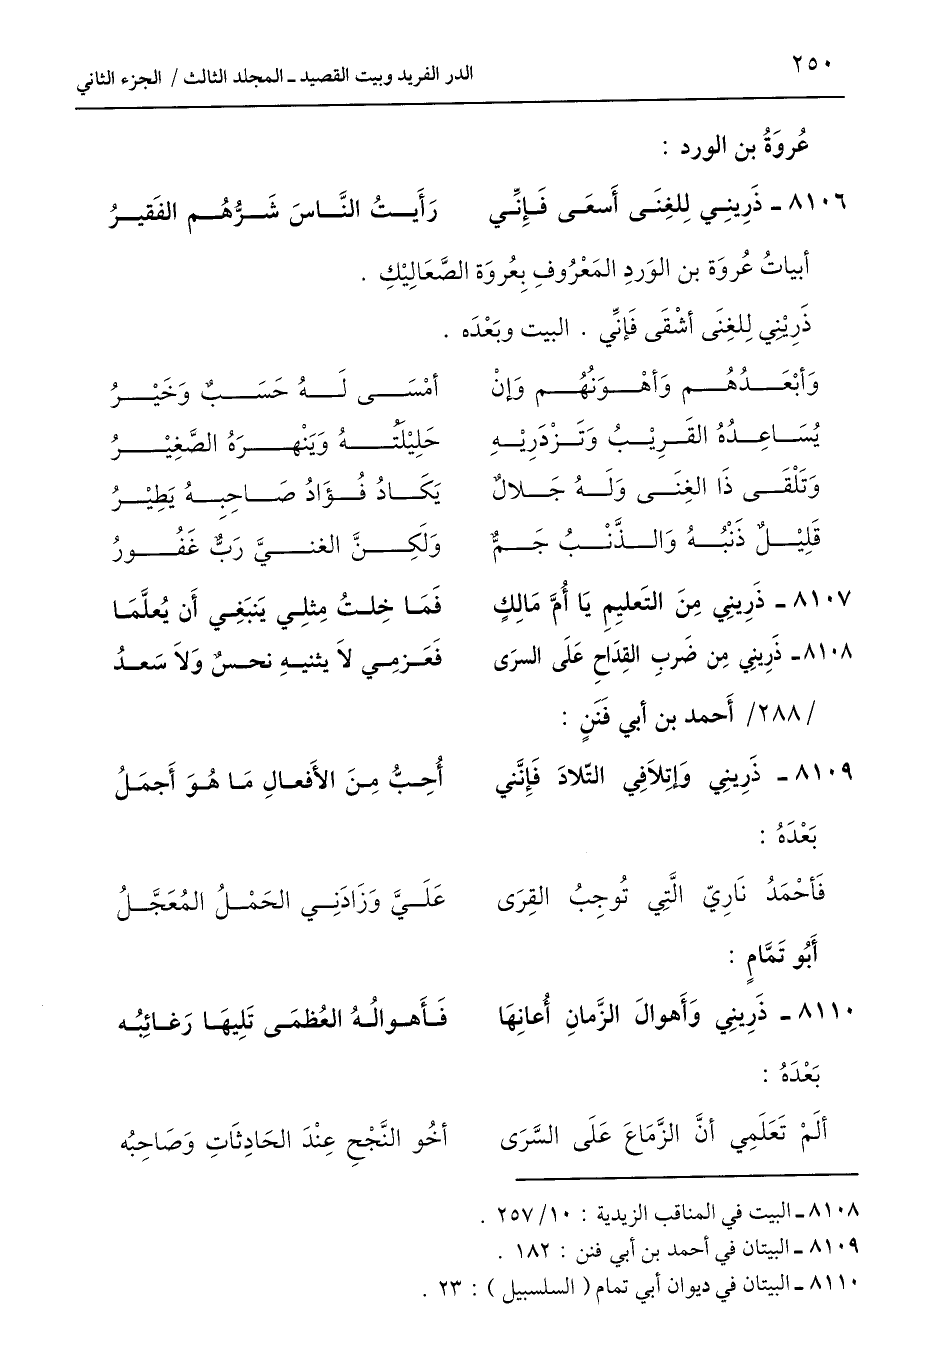 ٢٥٠
الدر الفريد وبيت القصيد ـ المجلد الثالث / الجزء الثاني
عُروَةُ بن الورد :
٨١٠٦ ـ ذَرِيني لِلغِنَى أَسعَى فَإِنِّي رَأَيتُ النَّاسَ شَرُّهُم الفَقيرُ
أبياتُ عُروَة بن الوَردِ المَعْرُوفِ بِعُروَة الصَّعَالِيْكِ .
ذَرِيْنِي لِلغِنَى أشْقَى فَإنِّي . البيت وبَعْدَه .
وَأبْعَدُهُم وَأهْوَنُهُم وَإنْ أمْسَى لَهُ حَسَبٌ وَخَيْرُ
يُسَاعِدُهُ القَرِيْبُ وَتَزْدَرِيْهِ حَلِيْلَتُهُ وَيَنْهرَهُ الصَّغِيْرُ
وَتَلْقَى ذَا الغِنَى وَلَهُ جَلالٌ يَكَادُ فُؤَادُ صَاحِبهُ يَطِيْرُ
قَلِيْلٌ ذَنْبُهُ وَالذَّنْبُ جَمٌّ وَلَكِنَّ الغنيَّ رَبٌّ غَفُورُ
٨١٠٧ ـ ذَرِيني مِنَ التَعليمِ يَا أُمَّ مَالِكٍ فَمَا خِلتُ مِثلِي يَنبَغِي أَن يُعلَّمَا
٨١٠٨ ـ ذَرِيني مِن ضَربِ القِدَاحِ عَلَى السرَى فَعَزمِي لاَ يثنيهِ نحسٌ وَلاَ سَعدُ
/٢٨٨/ أَحمد بن أبي فَنَنٍ :
٨١٠٩ ـ ذَرِيني وَإتلاَفِي التّلادَ فَإِنَّني أُحِبُّ مِنَ الأَفعالِ مَا هُوَ أَجمَلُ
بَعْدَهُ :
فَأحْمَدُ نَارِيّ الَّتِي تُوجِبُ القِرَى عَلَيَّ وَزَادَنِي الحَمْلُ المُعَجَّلُ
أَبُو تَمَّامٍ :
٨١١٠ ـ ذَرِيني وَأَهوالَ الزَّمانِ أُعانِهَا فَأَهوالُهُ العُظمَى تَلِيهَا رَغائِبُه
بَعْدَهُ :
ألَمْ تَعَلَمِي أنَّ الزَّمَاعَ عَلَى السَّرَى أخُو النَّجْحِ عِنْدَ الحَادِثَاتِ وَصَاحِبُه
٨١٠٨ ـ البيت في المناقب الزيدية : ١٠/ ٢٥٧ .
٨١٠٩ ـ البيتان في أحمد بن أبي فنن : ١٨٢ .
٨١١٠ ـ البيتان في ديوان أبي تمام ( السلسبيل ) : ٢٣ .